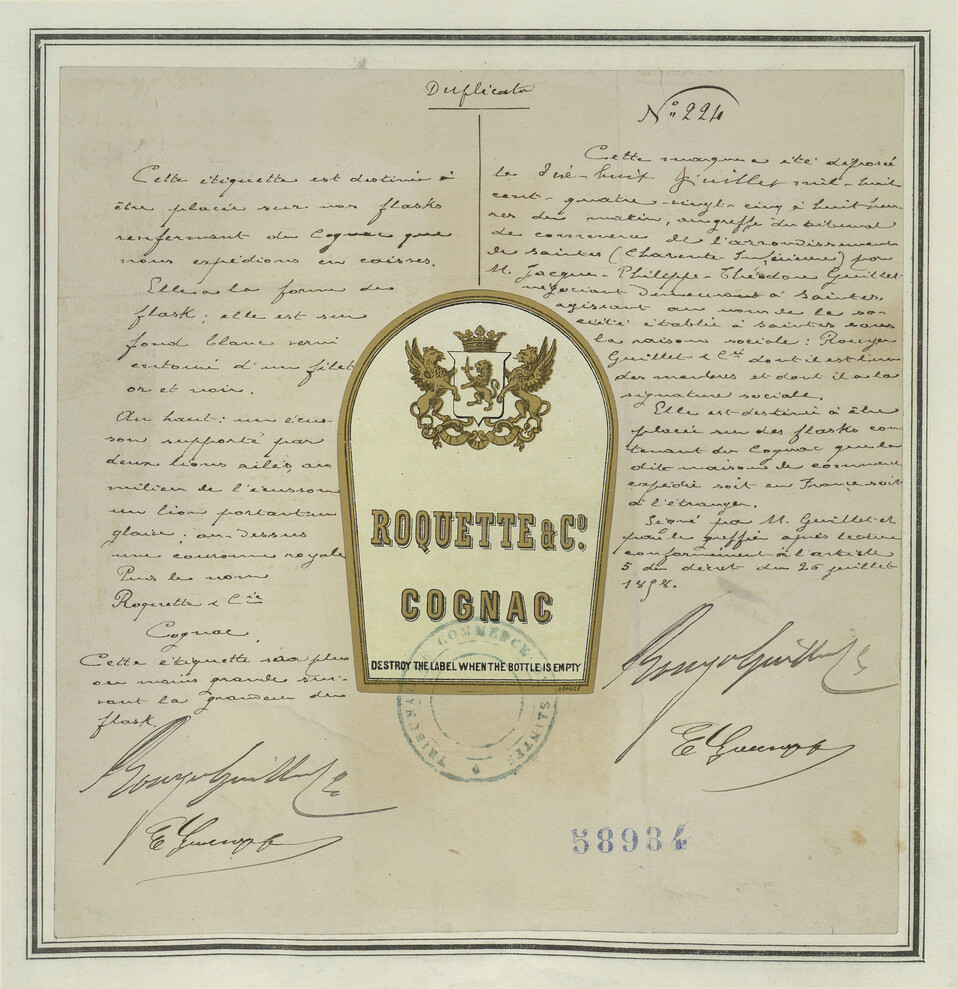 Duplicata
N° 224
Cette étiquette est destinée à
être placée sur nos flasks
renfermant du Cognac que
nous expédions en caisses.
Elle a la forme du
flask ; elle est sur
fond blanc verni
entouré d'un filet
or et noir.
Au haut : un écus-
son supporté par
deux lions ailés, au
milieu de l'écusson
un lion portant un
glaive ; au-dessus
une couronne royale
Puis le nom
Roquette & Cie
Cognac.
Cette étiquette sera plus
ou moins grande sui-
vant la grandeur du
flask.
Cette marque a été déposée
le Dix-huit Juillet mil-huit
cent-quatre-vingt-cinq à huit heu-
res du matin, au greffe du tribunal
de commerce de l'arrondissement
de Saintes (Charente Inférieure) par
M. Jacques-Philippe-Théodore Guillet
négociant demeurant à Saintes,
agissant au nom de la so-
ciété établie à Saintes sous
la raison sociale : Rouyer
Guillet & Cie dont il est l'un
des membres et dont il a la
signature sociale.
Elle est destinée à être
placée sur des flasks con-
tenant du Cognac que la
dite maison de commerce
expédie soit en France soit
à l'étranger.
Signé par M. Guillet et
par le greffier après lecture
conformément à l'article
5 du décret du 26 juillet
1858.
ROQUETTE & Cº.
COGNAC
DESTROY THE LABEL WHEN THE BOTTLE IS EMPTY
TRIBUNAL DE COMMERCE
SAINTES
Rouyer Guillet & Cie
Rouyer Guillet & Cie
58934